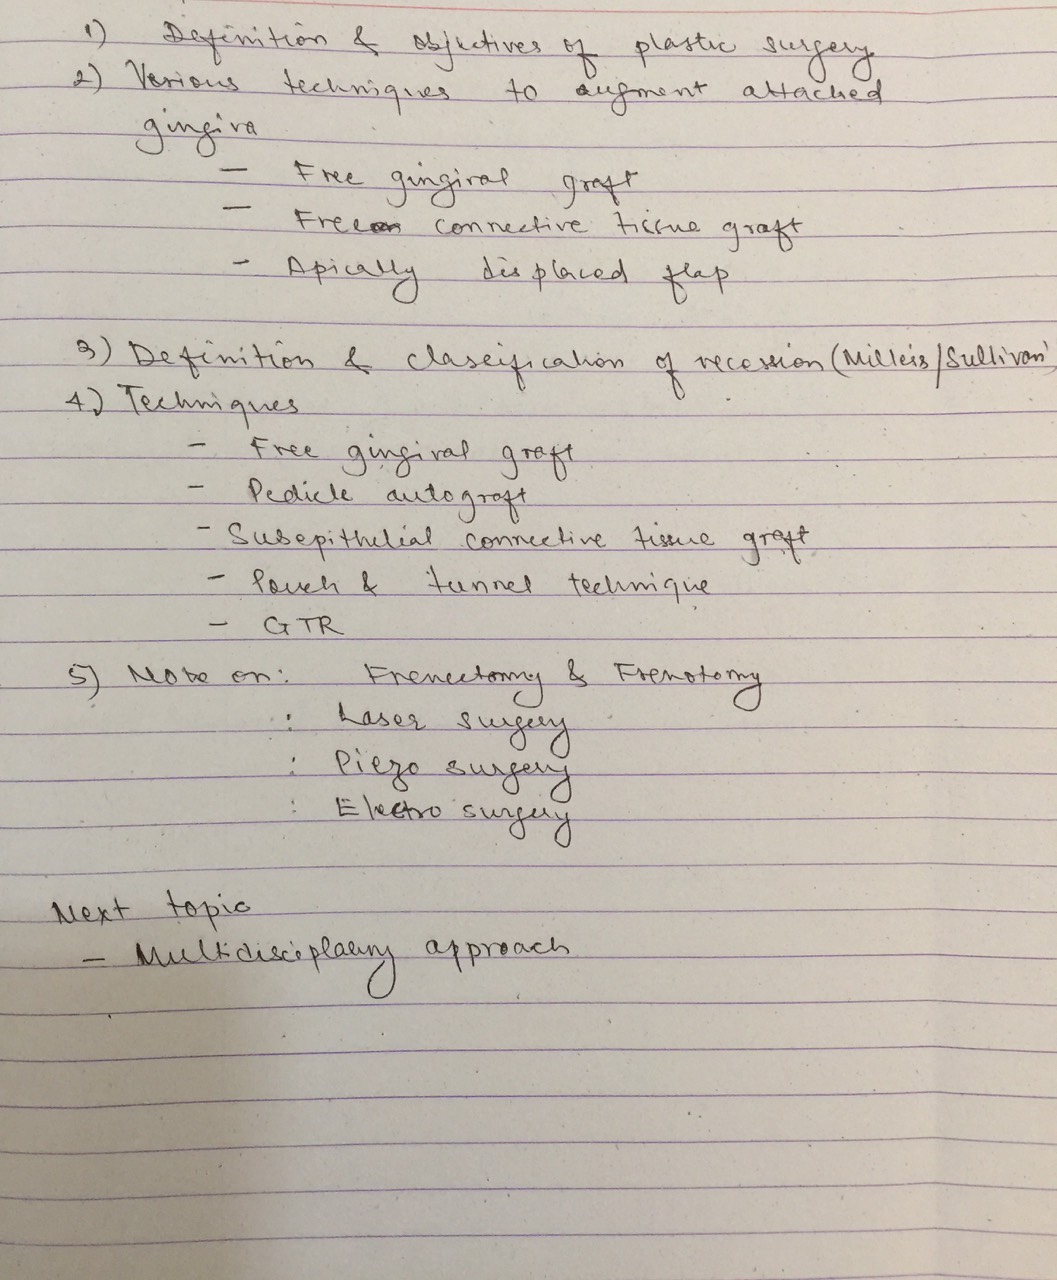 1) Definition & objectives of plastic surgery
2) Various techniques to augment attached
gingiva
— Free gingival graft
— Free connective tissue graft
- Apically displaced flap
3) Definition & classification of recession (Miller's/Sullivan)
4) Techniques
- Free gingival graft
- Pedicle autograft
- Subepithelial connective tissue graft
- Pouch & tunnel technique
- GTR
5) Note on: Frenectomy & Frenotomy
: Laser surgery
: Piezo surgery
: Electro surgery
Next topic
- Multidisciplaary approach